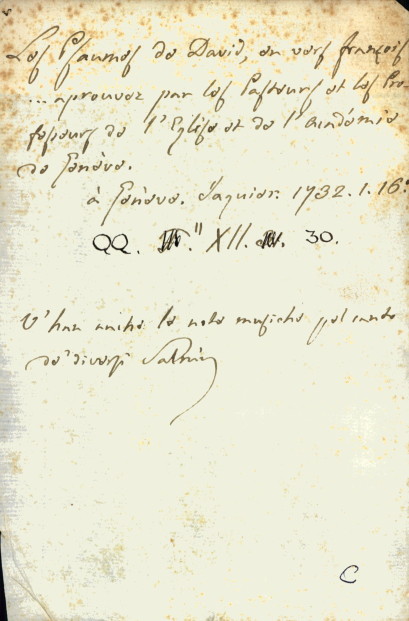 Les Psaumes de David, en vers françois
... aprouvez par les Pasteurs et les Pro-
fesseurs de l'Eglise et de l'Académie
de Genève.
à Genève. Jaquier. 1732. 1. 16.
QQ. XII. 30.
V'han anche le note musiche pel canto
de' diversi Salmi
C